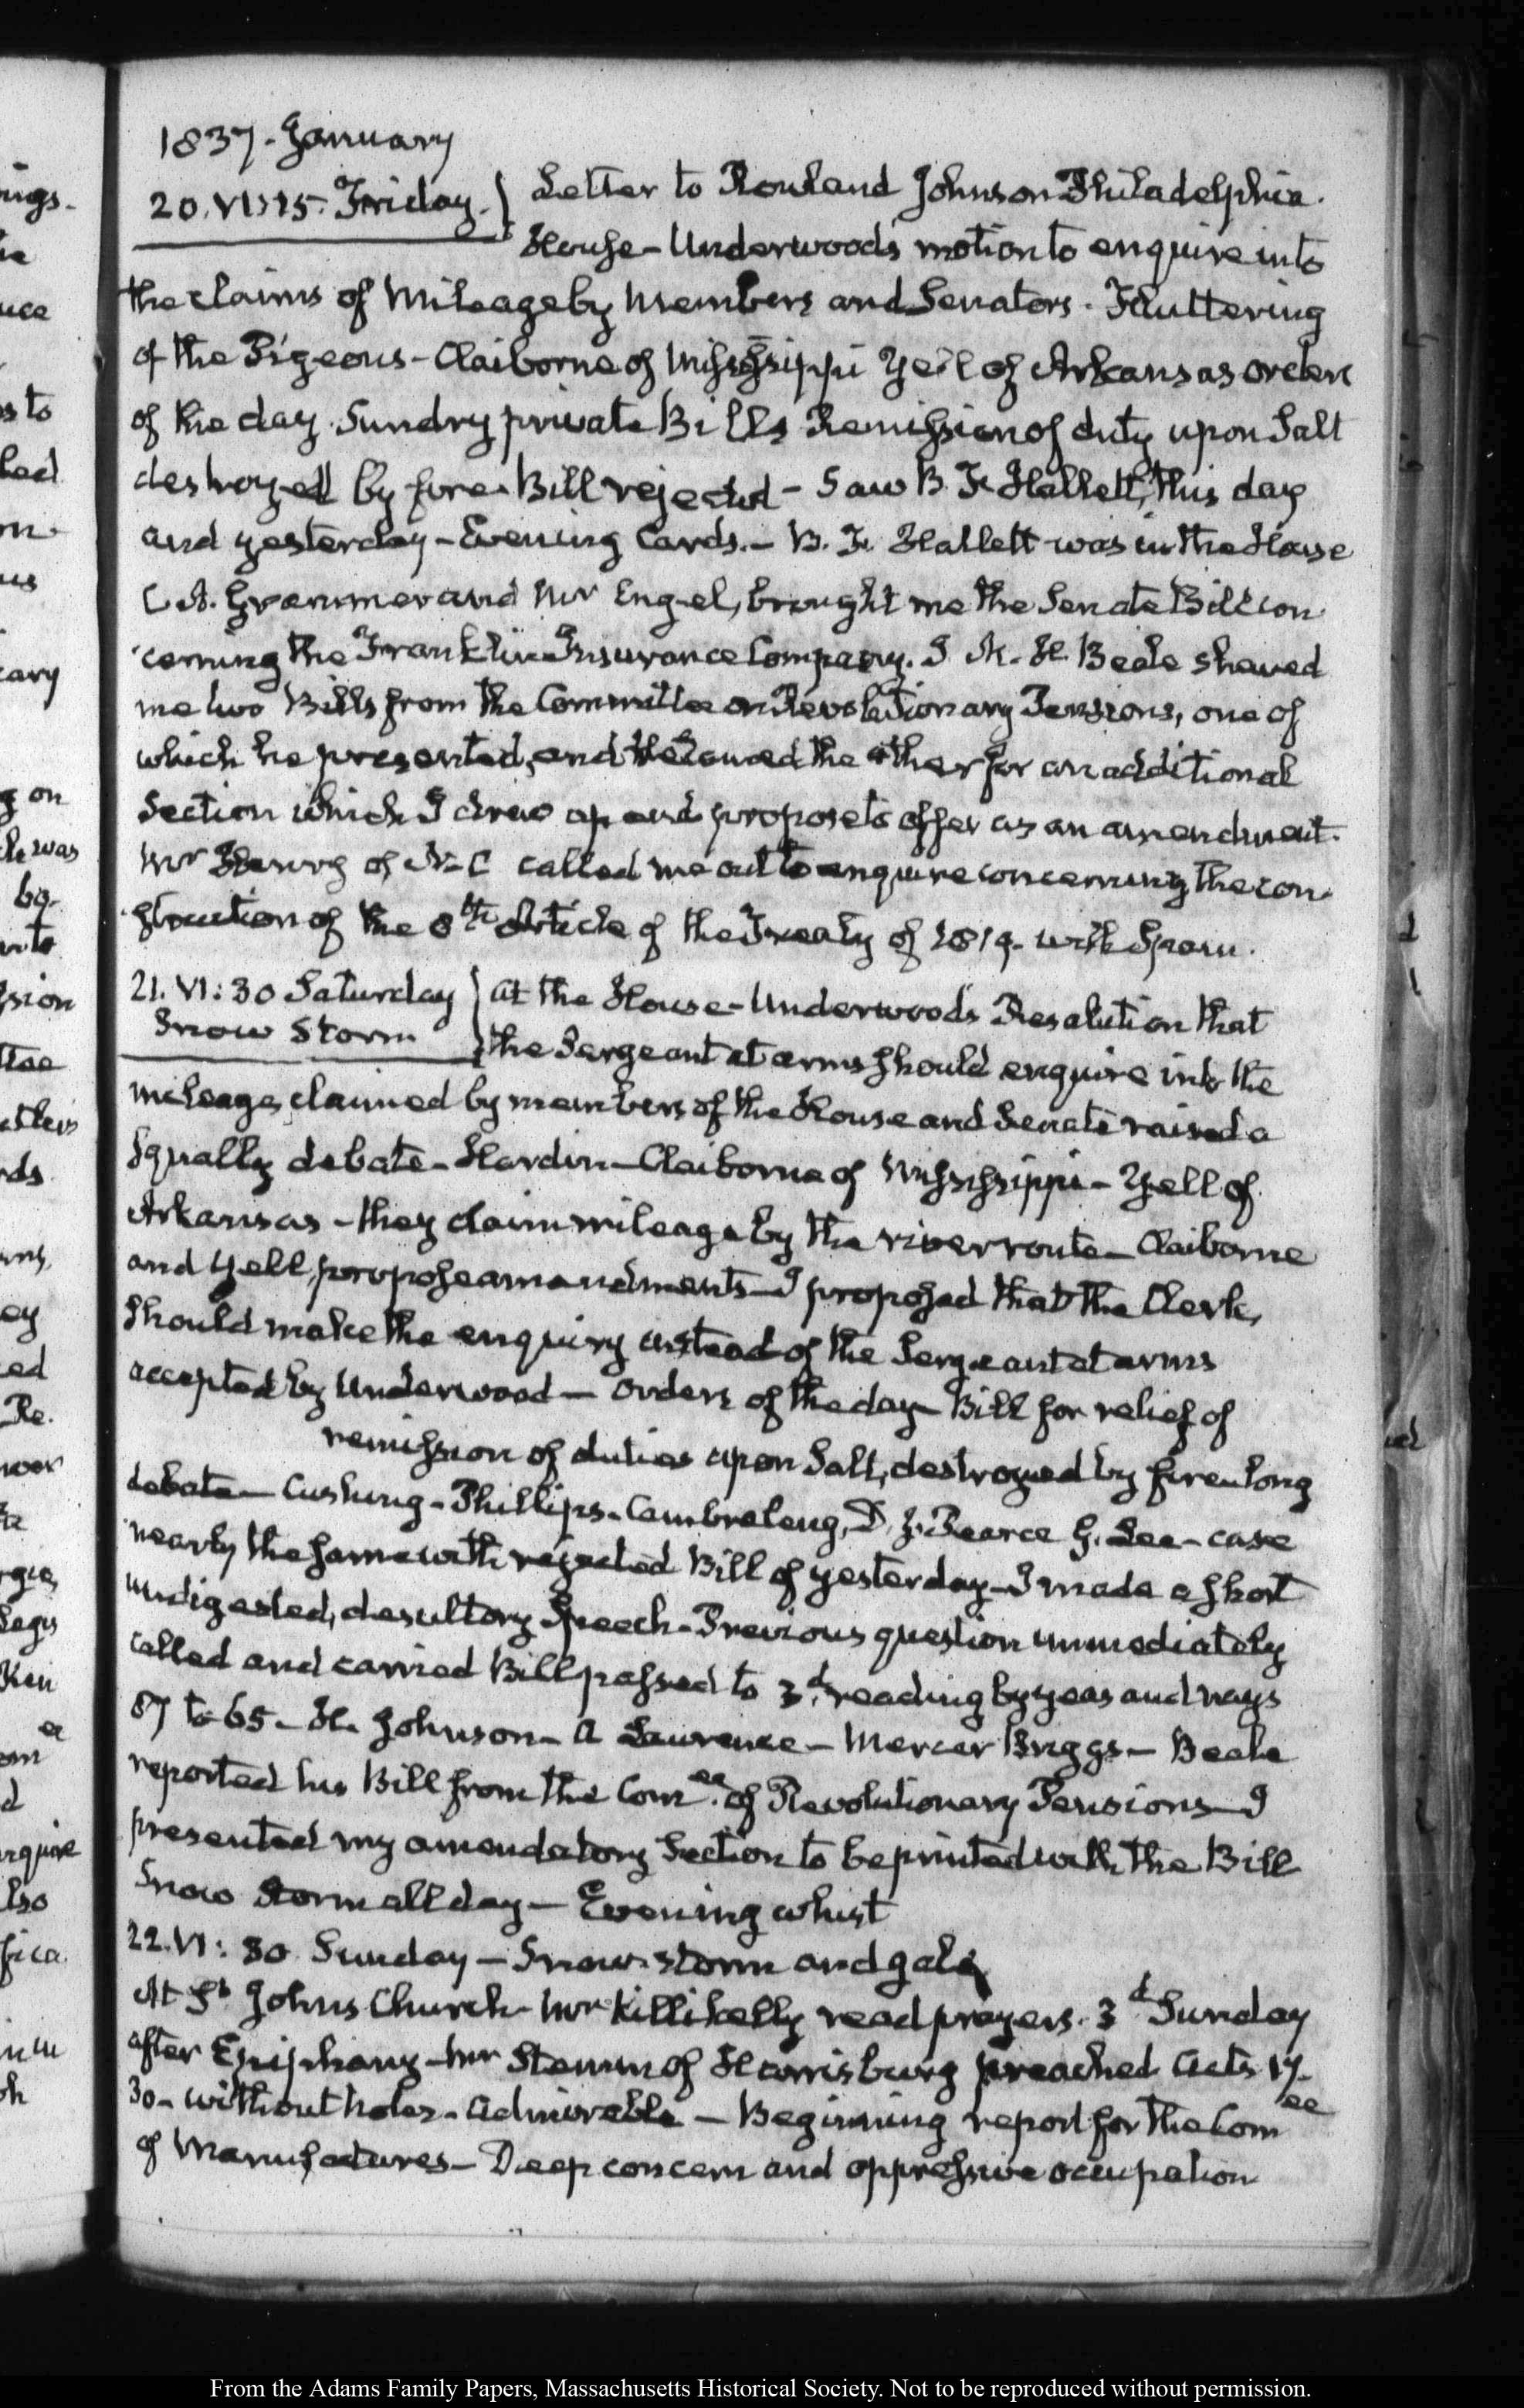 1837. January
20. VI:15. Friday. Letter to Rowland Johnson Philadelphia.
House - Underwood's motion to enquire into
the claims of Mileage by Members and Senators. Fluttering
of the Pigeons - Claiborne of Mississippi Yell of Arkansas orders
of the day. Sundry private Bills Remission of duty upon Salt
destroyed by fire. Bill rejected - Saw B. F. Hallett, this day
and yesterday - Evening Cards. - B. F. Hallett was in the House
Grammer and Mr Engel, brought me the Senate Bill con-
-cerning the Franklin Insurance Company. Beale shewed
me two Bills from the Committee on Revolutionary Pensions, one of
which he presented, and the other for an additional
Section which I drew up and propose to offer as an amendment.
Mr of N-C called me out to enquire concerning the con-
-struction of the 8th Article of the Treaty of 1819. with Spain.
21. VI:30 Saturday At the House - Underwood's Resolution that
Snow Storm the Sergeant at arms should enquire into the
mileage claimed by members of the House and Senate raised a
squally debate - Hardin - Claiborne of Mississippi - Yell of
Arkansas - they claim mileage by the river route - Claiborne
and Yell, propose amendments - I proposed that the Clerk,
should make the enquiry instead of the Sergeant at arms
accepted by Underwood - Orders of the day - Bill for relief of
remission of duties upon Salt, destroyed by fire. long
debate - Cushing - Phillips - Cambreleng, D. J. Pearce J. Lee - case
nearly the same with rejected Bill of yesterday - I made a short
undigested, desultory Speech - Previous question immediately
called and carried Bill passed to 3d reading by yeas and nays
87 to 65 - H. Johnson - A Lawrence - Mercer Briggs - Beale
reported his Bill from the Comee of Revolutionary Pensions - I
presented my amendatory Section to be printed with the Bill
Snow storm all day - Evening whist
22. VI:30. Sunday - Snow-storm and gale
At St Johns Church Mr Killikelly read prayers. 3d Sunday
after Epiphany - Mr of Harrisburg preached Acts 17.
30 - without notes - Admirable - Beginning report for the Comee
of Manufactures - Deep concern and oppressive occupation
From the Adams Family Papers, Massachusetts Historical Society. Not to be reproduced without permission.